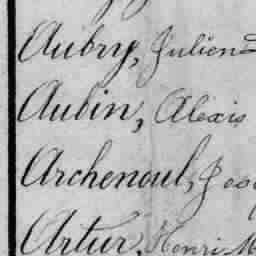 Aubry, Julien
Aubin, Alexis
Archenoul, Jos
Artur, Henri M